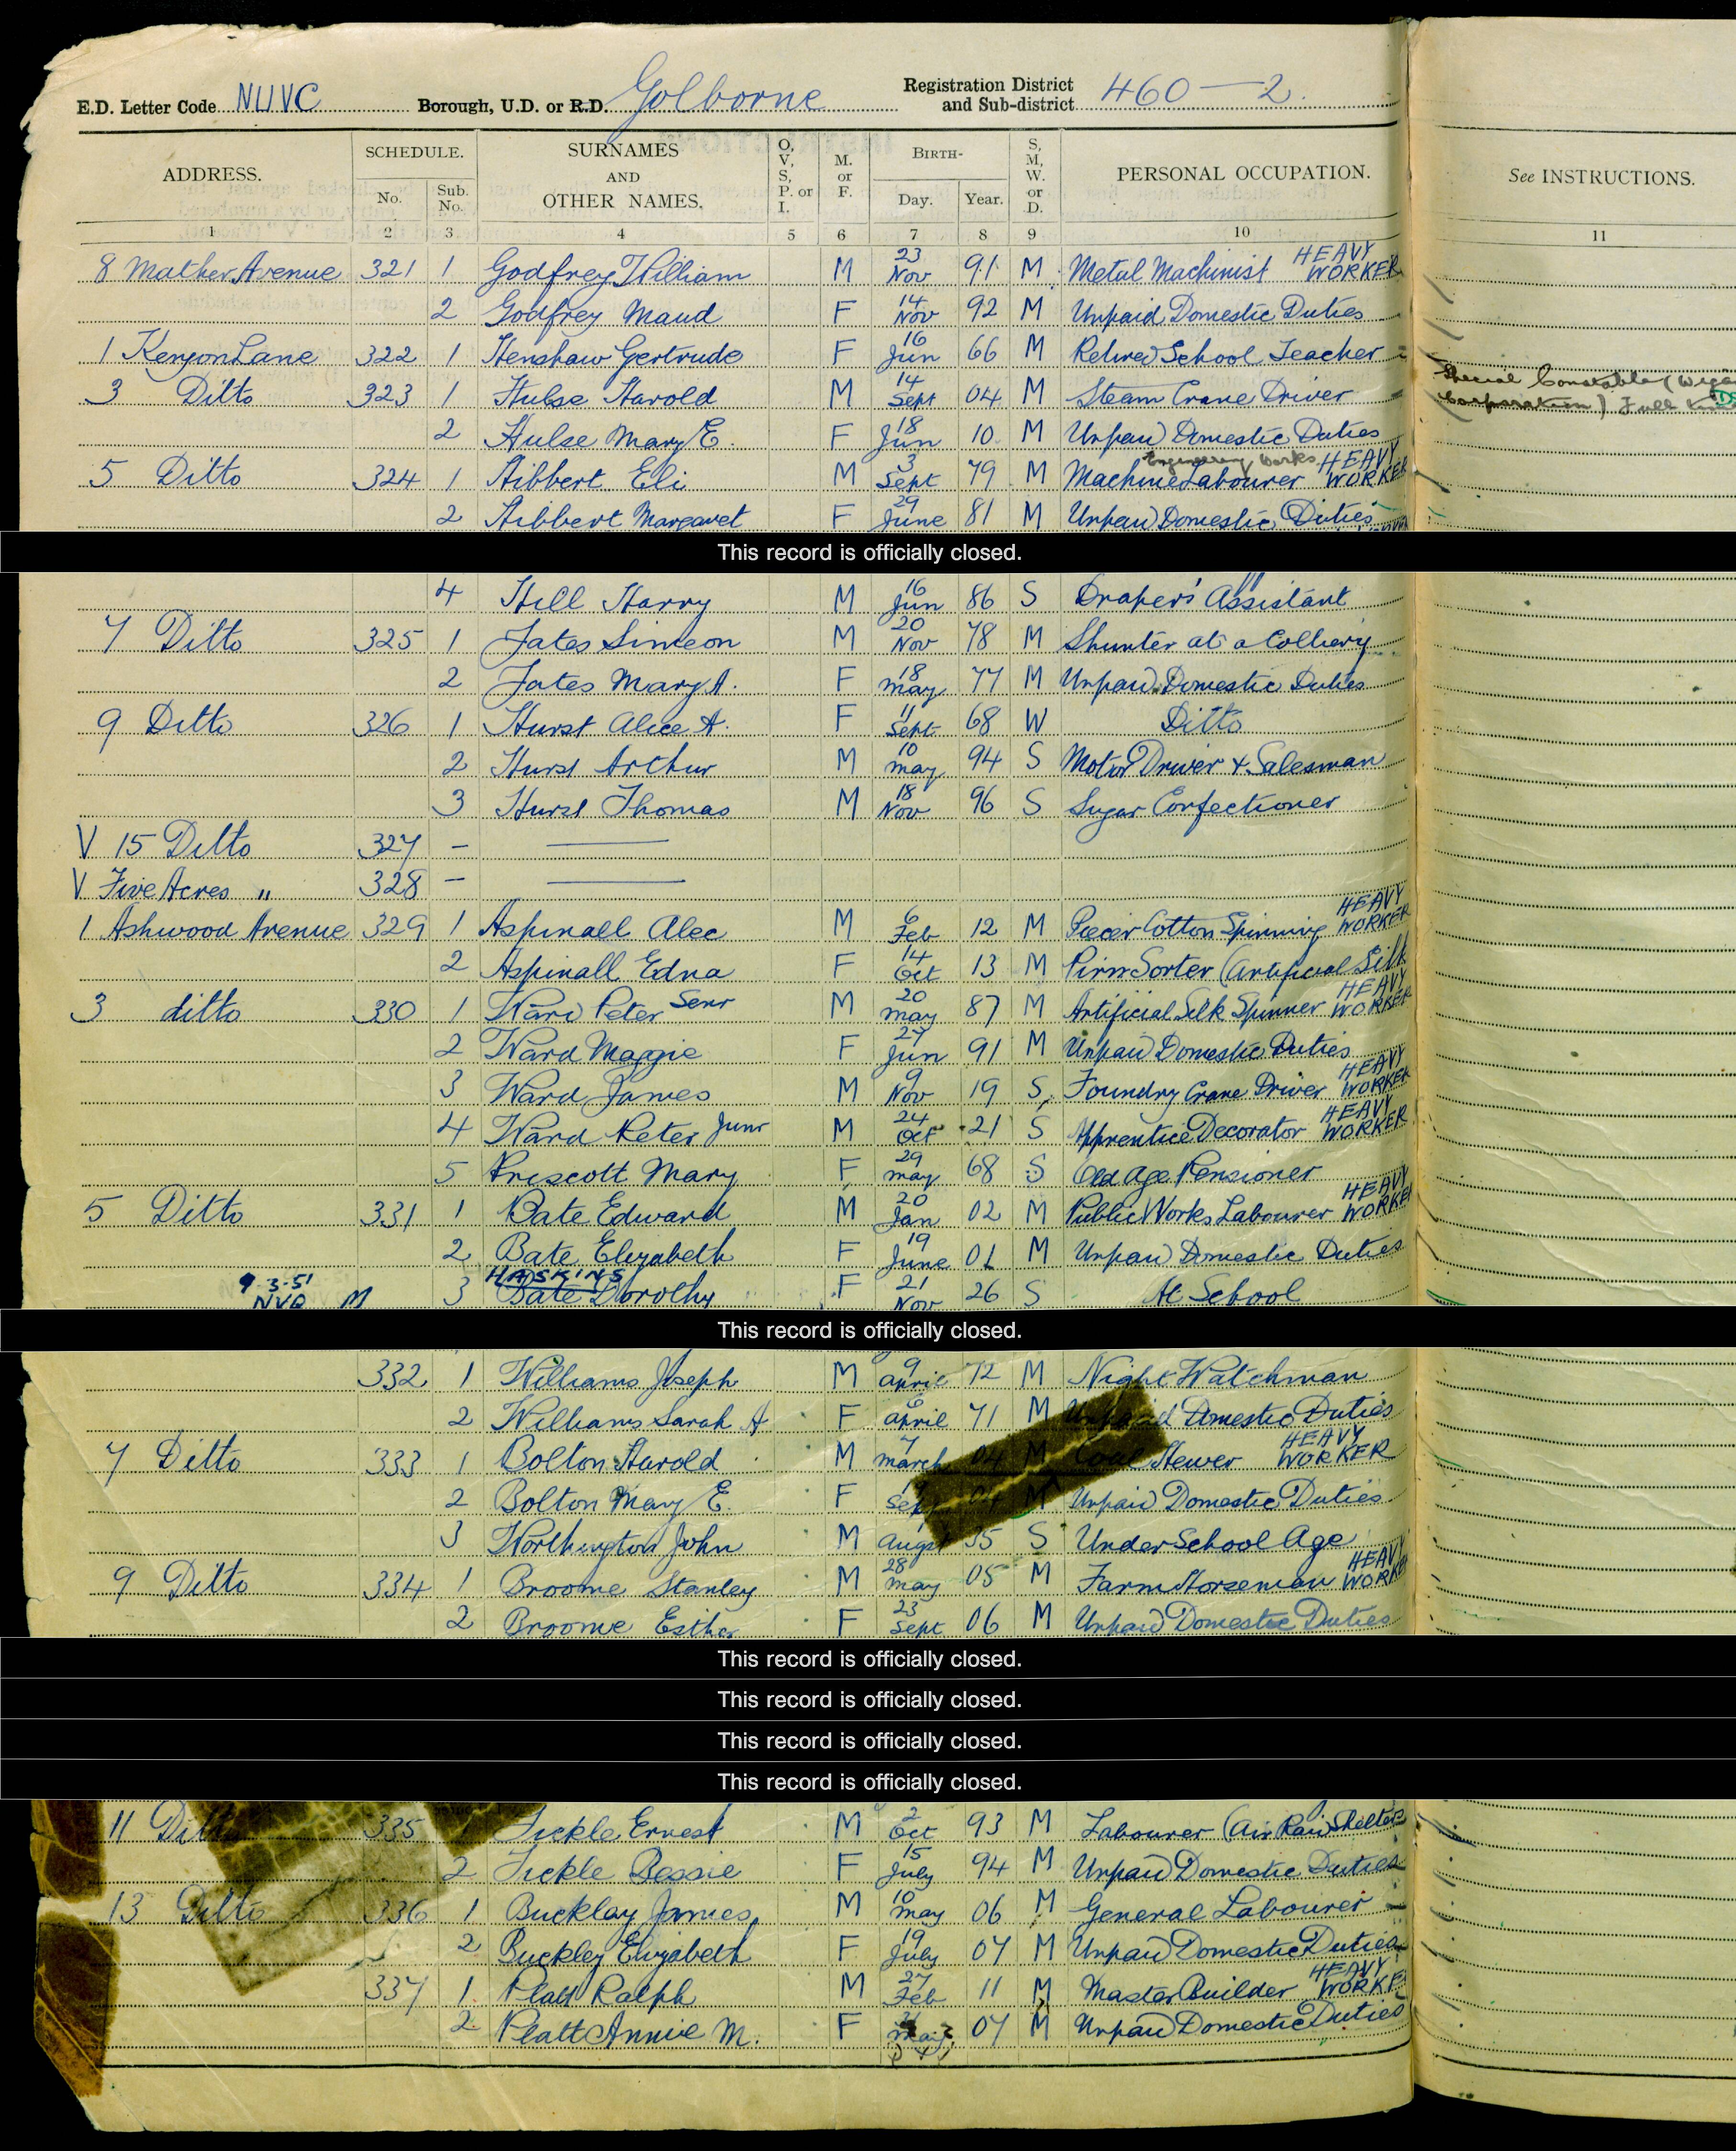 E.D. Letter Code NUVC Borough, U.D. or R.D. Golborne Registration District and Sub-district 460-2.
ADDRESS. SCHEDULE. No. Sub. No. SURNAMES AND OTHER NAMES. O, V, S, P. or I. M. or F. BIRTH- Day. Year. S, M, W. or D. PERSONAL OCCUPATION. See INSTRUCTIONS.
1 2 3 4 5 6 7 8 9 10 11
8 Mather Avenue 321 1 Godfrey William M 23 Nov 91 M Metal Machinist HEAVY WORKER
2 Godfrey Maud F 14 Nov 92 M Unpaid Domestic Duties
1 Kenyon Lane 322 1 Henshaw Gertrude F 16 Jun 66 M Retired School Teacher
3 Ditto 323 1 Hulse Harold M 14 Sept 04 M Steam Crane Driver Special Constable (Wigan Corporation) Full
2 Hulse Mary E. F 18 Jun 10 M Unpaid Domestic Duties
5 Ditto 324 1 Hibbert Eli M 3 Sept 79 M Machine Labourer Engineering Works HEAVY WORKER
2 Hibbert Margaret F 29 June 81 M Unpaid Domestic Duties
This record is officially closed.
4 Hill Harry M 16 Jun 86 S Drapers' Assistant
7 Ditto 325 1 Fates Simeon M 20 Nov 78 M Shunter at a Colliery
2 Fates Mary A. F 18 May 77 M Unpaid Domestic Duties
9 Ditto 326 1 Hurst Alice A. F 11 Sept 68 W Ditto
2 Hurst Arthur M 10 May 94 S Motor Driver & Salesman
3 Hurst Thomas M 18 Nov 96 S Sugar Confectioner
V 15 Ditto 327 -
V Five Acres " 328 -
1 Ashwood Avenue 329 1 Aspinall Alec M 6 Feb 12 M Piecer Cotton Spinning HEAVY WORKER
2 Aspinall Edna F 14 Oct 13 M Pirn Sorter (Artificial Silk
3 ditto 330 1 Ward Peter Senr M 20 May 87 M Artificial Silk Spinner HEAVY WORKER
2 Ward Maggie F 27 Jun 91 M Unpaid Domestic Duties
3 Ward James M 9 Nov 19 S Foundry Crane Driver HEAVY WORKER
4 Ward Peter Junr M 24 Oct 21 S Apprentice Decorator HEAVY WORKER
5 Priscott Mary F 29 May 68 S Old Age Pensioner
5 Ditto 331 1 Bate Edward M 20 Jan 02 M Public Works Labourer HEAVY WORKER
2 Bate Elizabeth F 19 June 01 M Unpaid Domestic Duties
9.3.51 NVR M 3 HASKINS Bate Dorothy F 21 Nov 26 S At School
This record is officially closed.
332 1 Williams Joseph M 9 April 72 M Night Watchman
2 Williams Sarah A F 6 April 71 M Unpaid Domestic Duties
7 Ditto 333 1 Bolton Harold M 7 March 04 M Coal Hewer HEAVY WORKER
2 Bolton Mary E. F Sept 04 M Unpaid Domestic Duties
3 Worthington John M Augst 35 S Under School Age
9 Ditto 334 1 Broome Stanley M 28 May 05 M Farm Horseman HEAVY WORKER
2 Broome Esther F 23 Sept 06 M Unpaid Domestic Duties
This record is officially closed.
This record is officially closed.
This record is officially closed.
This record is officially closed.
11 Ditto 335 1 Fickle Ernest M 2 Oct 93 M Labourer (Air Raid Shelters
2 Fickle Bessie F 15 July 94 M Unpaid Domestic Duties
13 Ditto 336 1 Buckley James M 10 May 06 M General Labourer
2 Buckley Elizabeth F 19 July 07 M Unpaid Domestic Duties
337 1 Platt Ralph M 27 Feb 11 M Master Builder HEAVY WORKE
2 Platt Annie M. F May 07 M Unpaid Domestic Duties